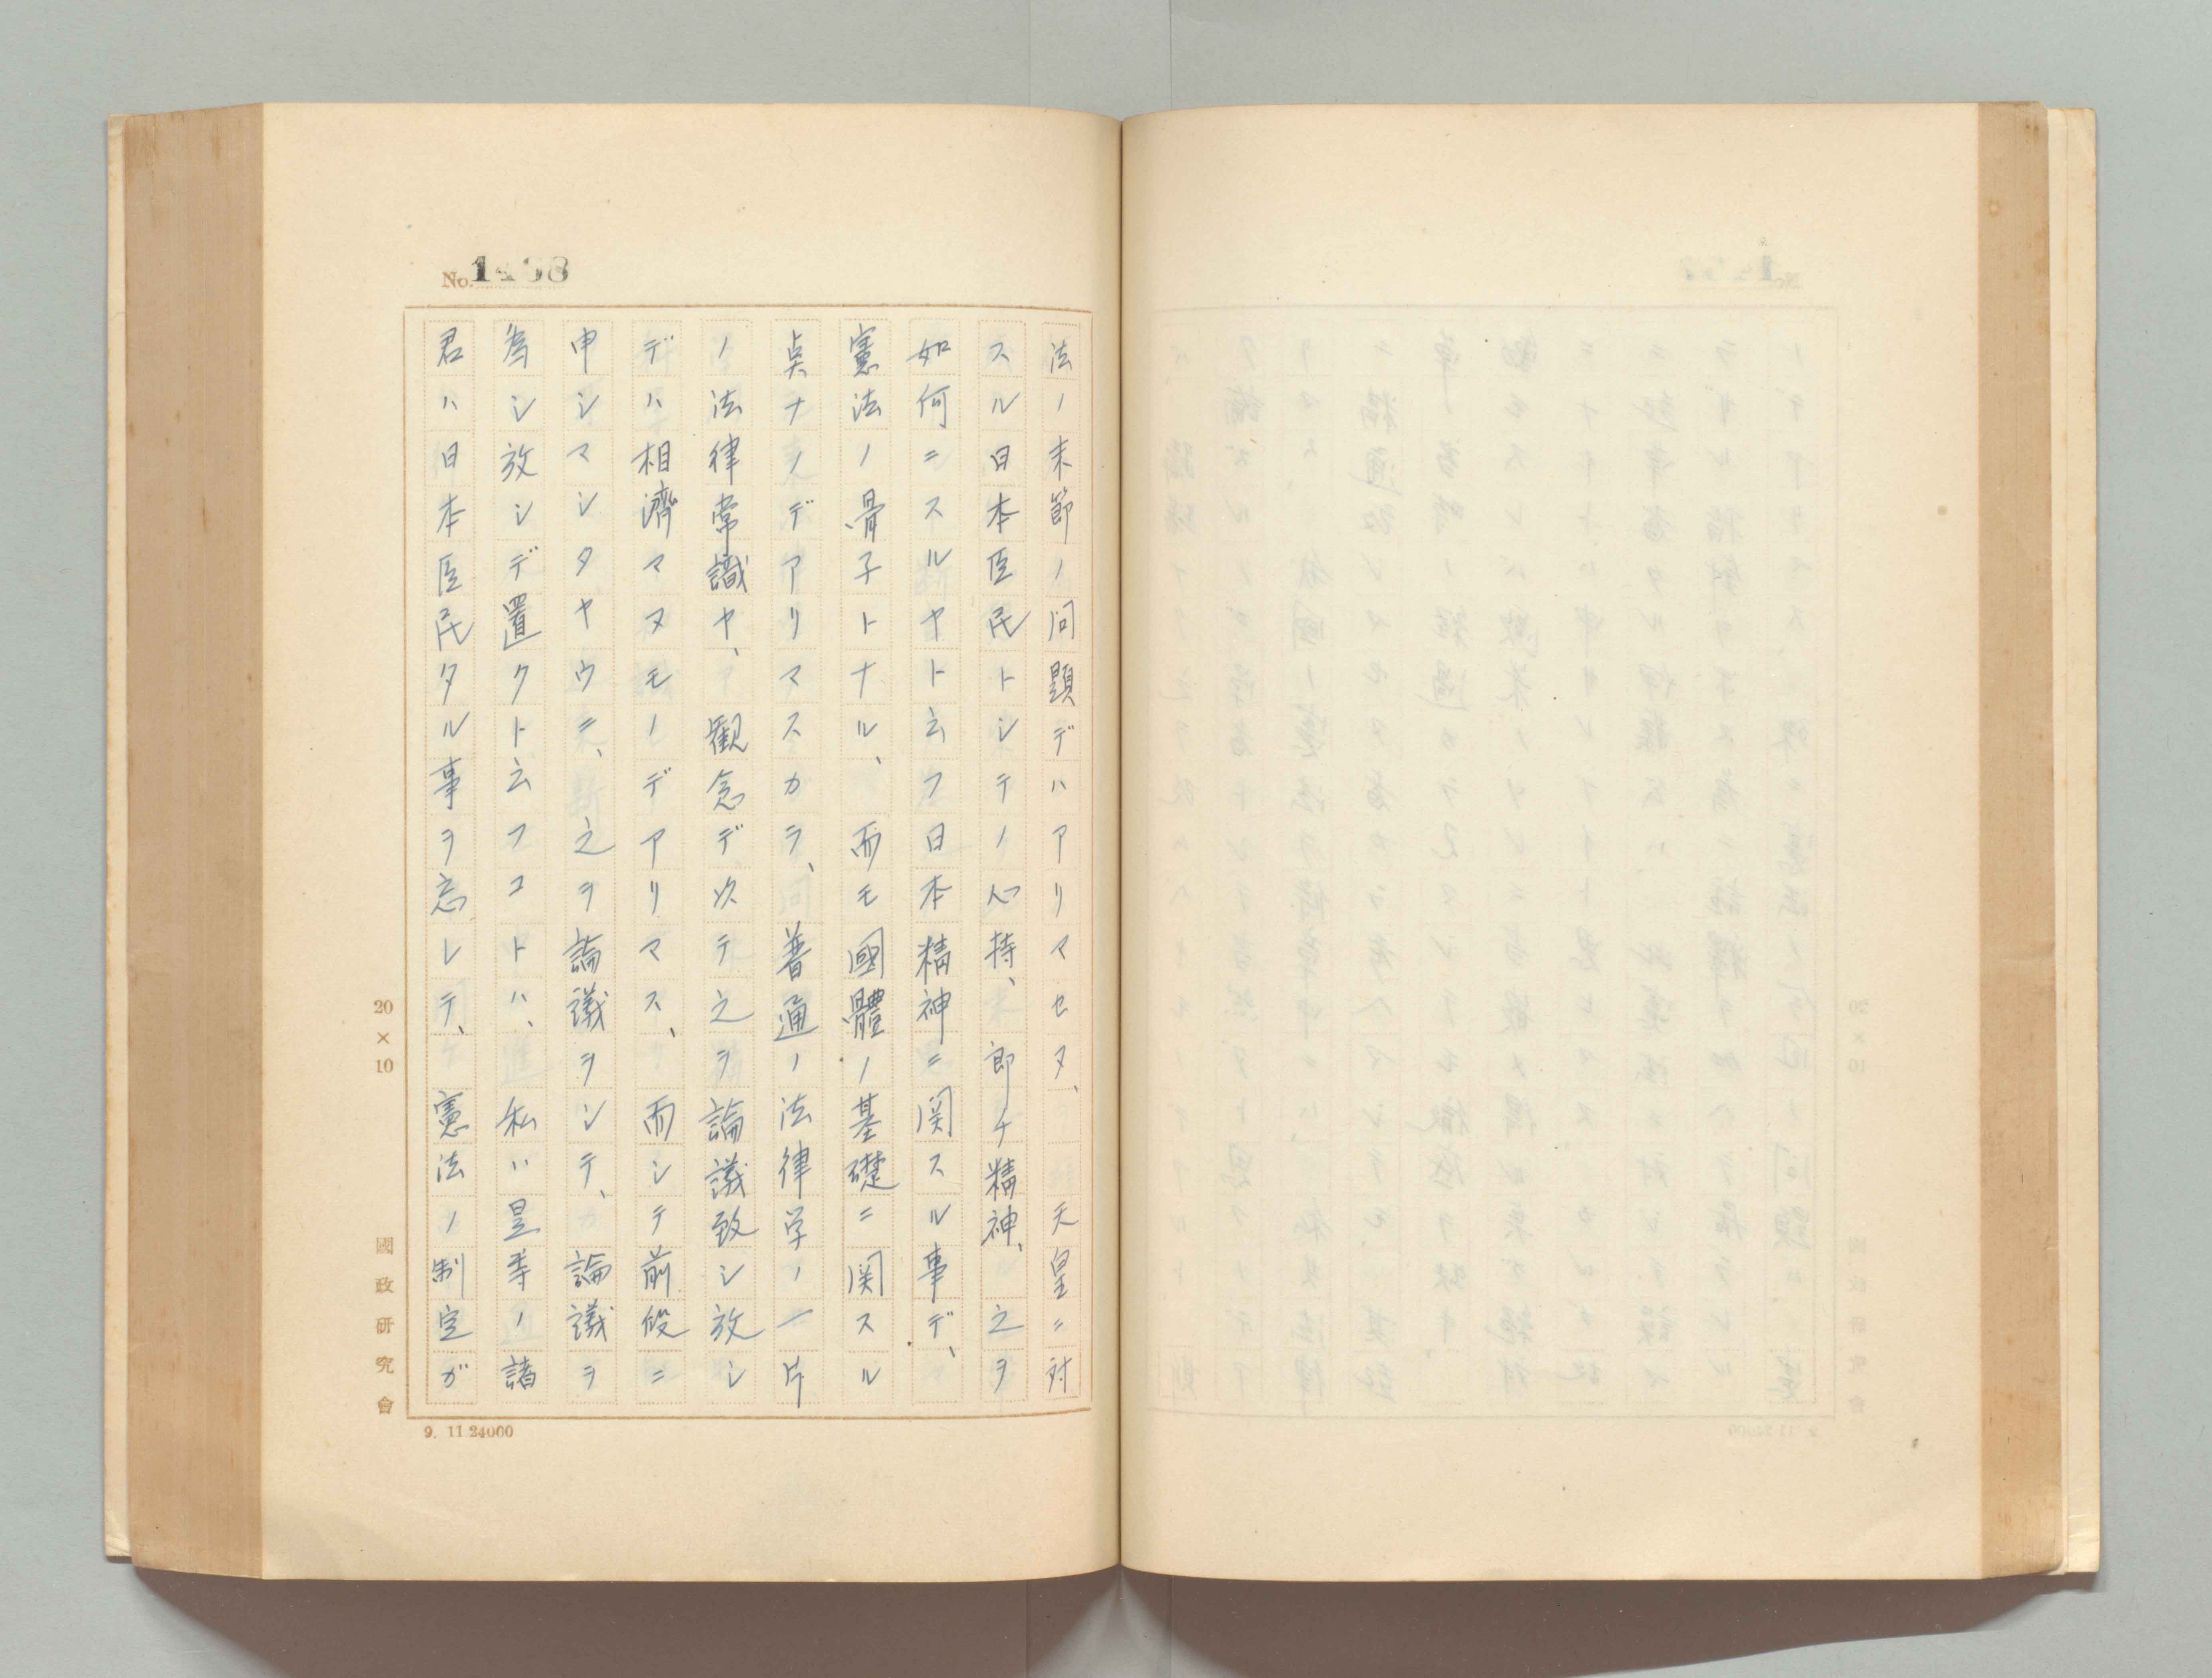 No.
法ノ末節ノ問題デハアリマセヌ、天皇ニ対
スル日本臣民トシテノ心持、郎チ精神、之ヲ
如何ニスルヤト云フ日本精神ニ関スル事デ、
憲法ノ骨子トナル、而モ國體ノ基礎ニ関スル
眞ナノデアリマスカラ、普通ノ法律学ノ一片
ノ法律常識ヤ、観念デ以テ之ヲ論議致シ放シ
デハ相濟マヌモノデアリマス、而シテ前段ニ
申シマシタヤウニ、之ヲ論議ヲシテ、論議ヲ
為シ放シデ置クト云フコトハ、私ハ是等ノ諸
君ハ日本臣民タル事ヲ忘レテ、憲法ノ制定ガ
20×10
國政研究會
9. 11.24000